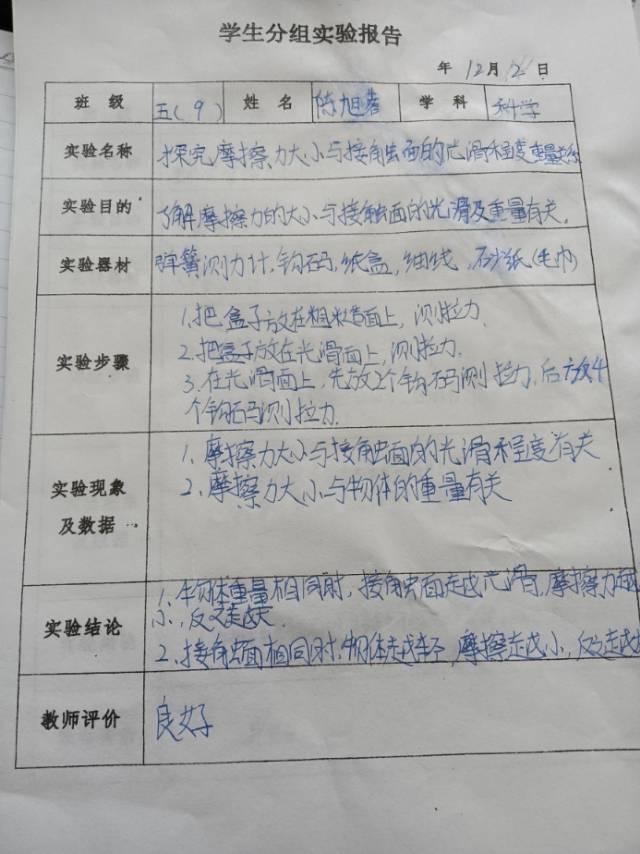 学生分组实验报告
年 12月2日
班 级 五(9) 姓 名 陈旭 学 科 科学
实验名称 探究摩擦力大小与接触面的光滑程度重量
实验目的 了解摩擦力的大小与接触面的光滑及重量有关。
实验器材 弹簧测力计,钩码,纸盒,细线,砂纸(毛巾)
实验步骤 1.把盒子放在粗糙面上,测拉力.
2.把盒子放在光滑面上,测拉力.
3.在光滑面上,先放2个钩码测拉力,后放4
个钩码测拉力.
实验现象及数据 1、摩擦力大小与接触面的光滑程度有关
2、摩擦力大小与物体的重量有关
实验结论 1、物体重量相同时,接触面越光滑,摩擦力越
小,反之越大.
2、接触面相同时,物体越轻,摩擦越小,反之越
教师评价 良好